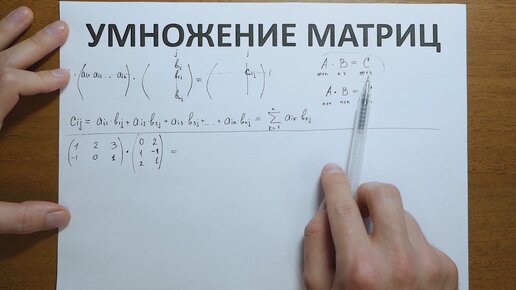 УМНОЖЕНИЕ МАТРИЦ
· (ai1 ai2 ... ain) · (b1j b2j ⋮ bnj) = (cij) i
j j
A · B = C
m×n n×k m×k
A · B =
n×n n×n
cij = ai1·b1j + ai2·b2j + ai3·b3j + ... + ain·bnj = Σ aik·bkj
n
k=1
(1 2 3) · (0 2) =
(-1 0 1) (1 -1)
(2 1)